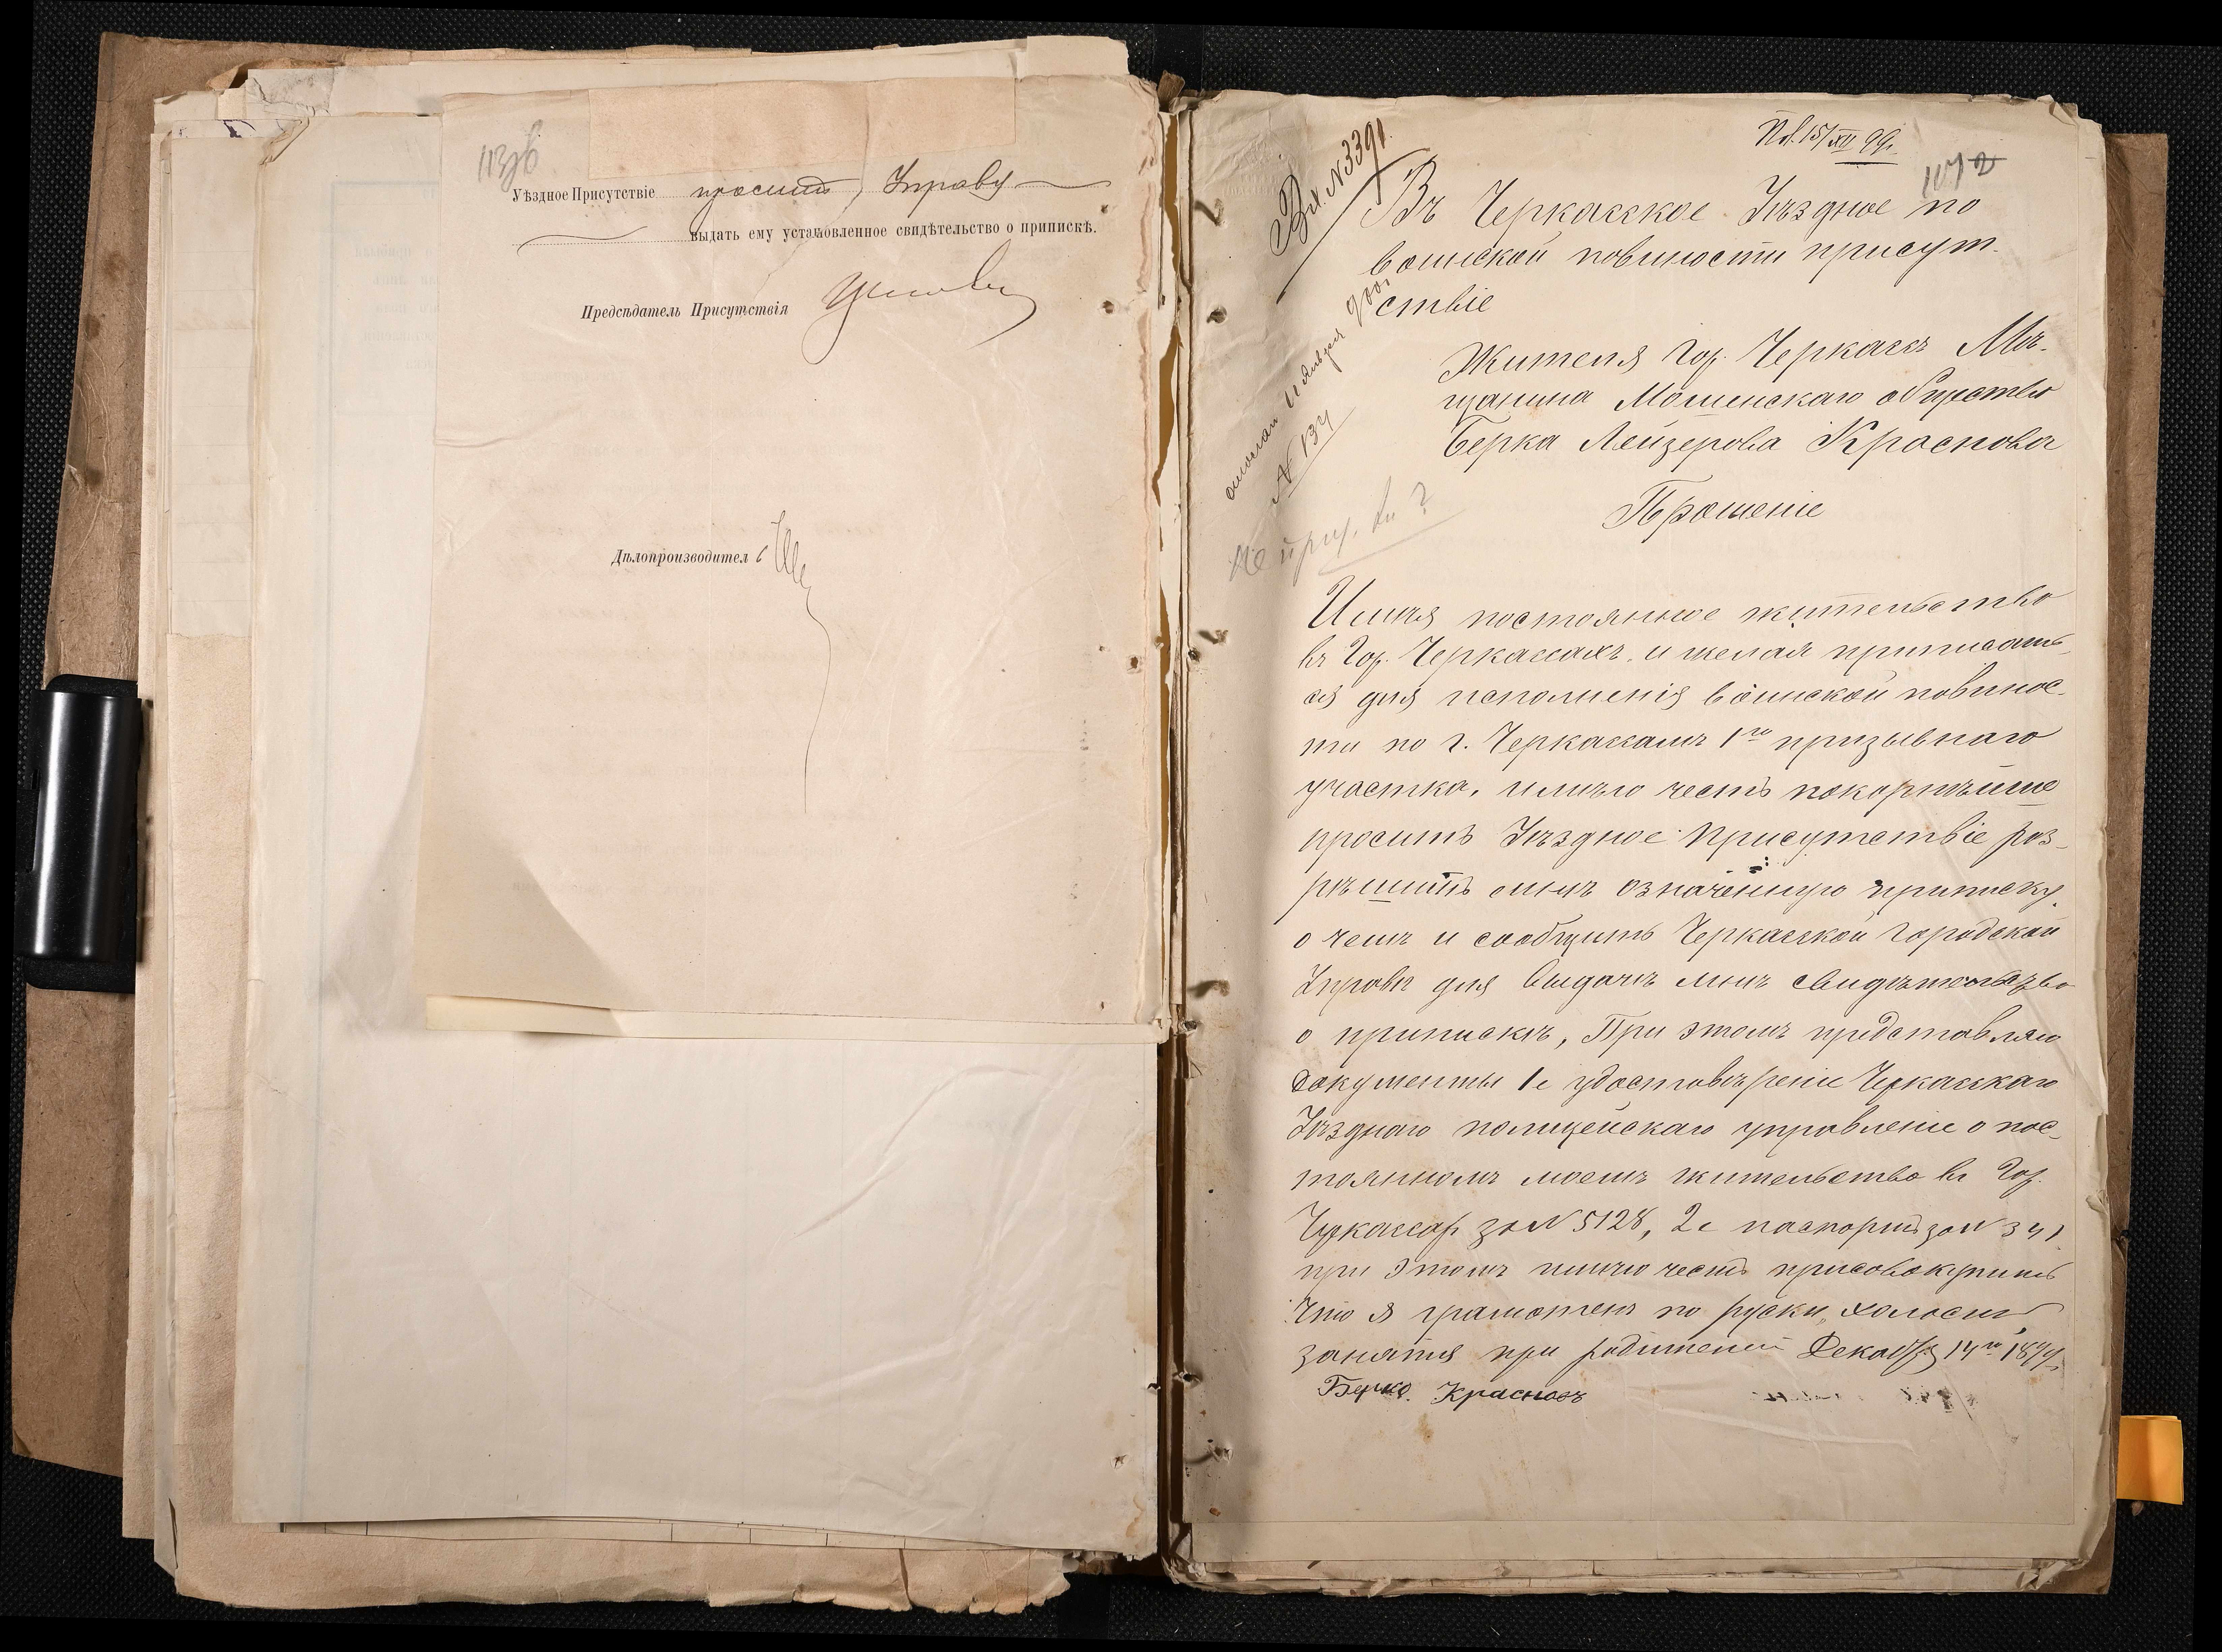 Уѣздное Присутствіе проситъ Управу
выдать ему установленное свидѣтельство о припискѣ.
Предсѣдатель Присутствія
Дѣлопроизводитель
Пол. 15/XII 99 г.
1072
Вх. № 3391
Въ Черкасское Уѣздное по
воинской повиности присут-
ствіе
№ 134
Жителя Гор. Черкассъ Мѣ-
щанина Мошенскаго общества
Берка Лейзерова Краснова
Прошеніе
Имѣя постоянное жительство
въ Гор. Черкассахъ и желая приписать-
ся для исполненія воинской повинос-
ти по г. Черкассамъ 1го призывнаго
участка, имѣю честь покорнѣйше
просить Уѣздное Присутствіе раз-
рѣшить мнѣ означенную приписку,
о чемъ и сообщить Черкасской Городской
Управы для выдачѣ мнѣ свидѣтельство
о припискѣ, При этомъ представляю
документы 1е удостовѣреніе Черкасскаго
Уѣзднаго полицейскаго управленіе о пос-
тоянномъ моемъ жительство въ Гор.
Черкассах за № 5128, 2е паспортъ за № 341
при этомъ имѣю честь присовокупить
что я грамотенъ по руски, холостъ
занятія при родителей Декабря 14го 1899 г.
Берко Красновъ